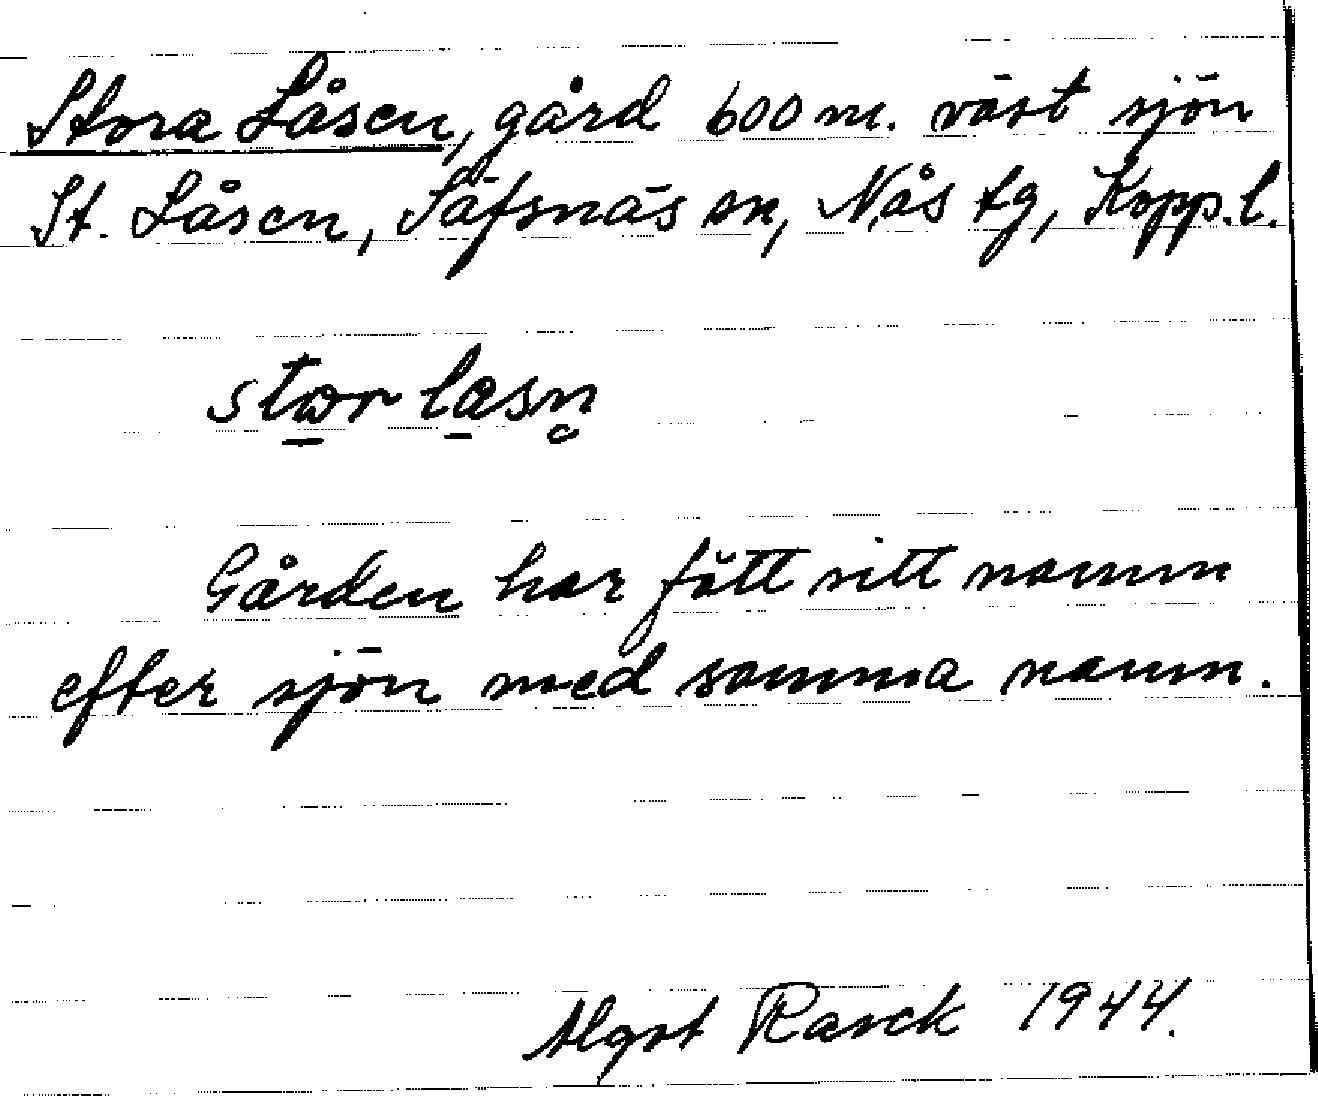 Stora Låsen, gård 600 m. väst sjön
St. Låsen, Säfsnäs sn, Nås tg, Kopp.l.
Gården har fått sitt namn
efter sjön med samma namn.
Algot Rasck 1944.